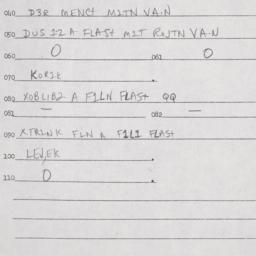 040 D3R MENCT MITN VA.N
050 DUS 12 A FLAST MIT RNTN VA-N
060 O 061 O
070 KORIK.
080 XOBLIB2 A F1LN FLAST QQ
081 — 082 —
090 XTRLNK FLN A F1L1 FLAST
100 LEVEK.
110 O.